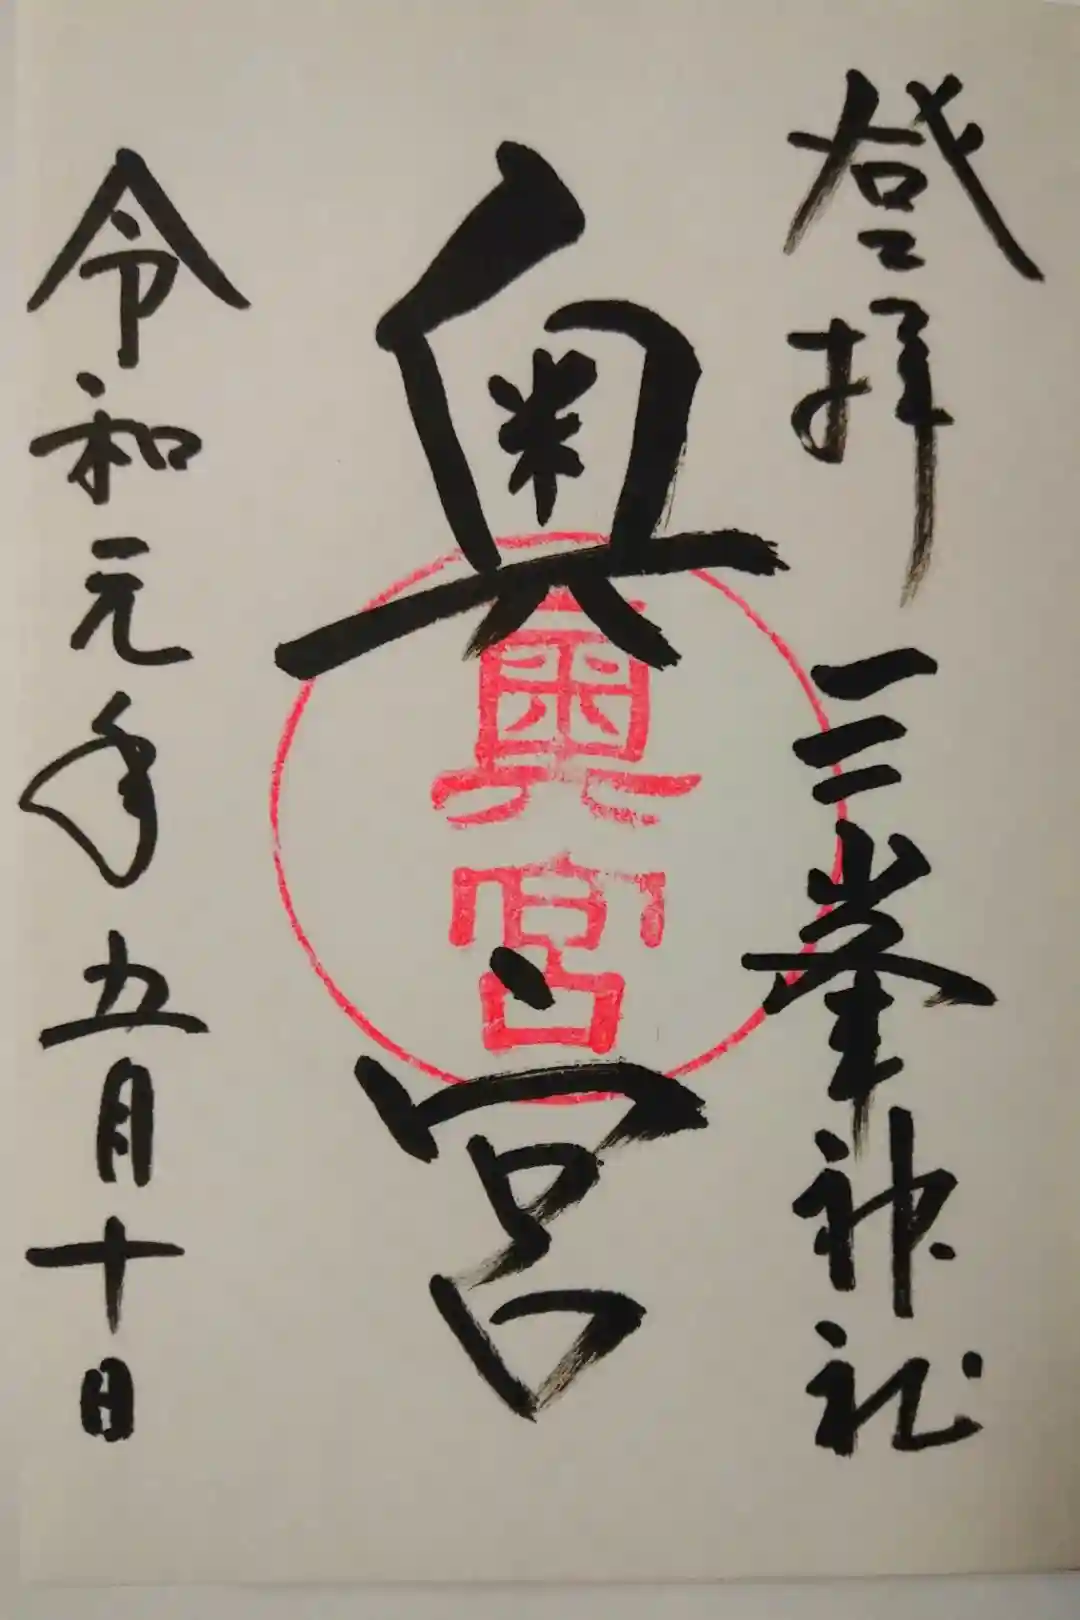 登拝 三峯神社
奥宮
奥宮
令和元年五月十日